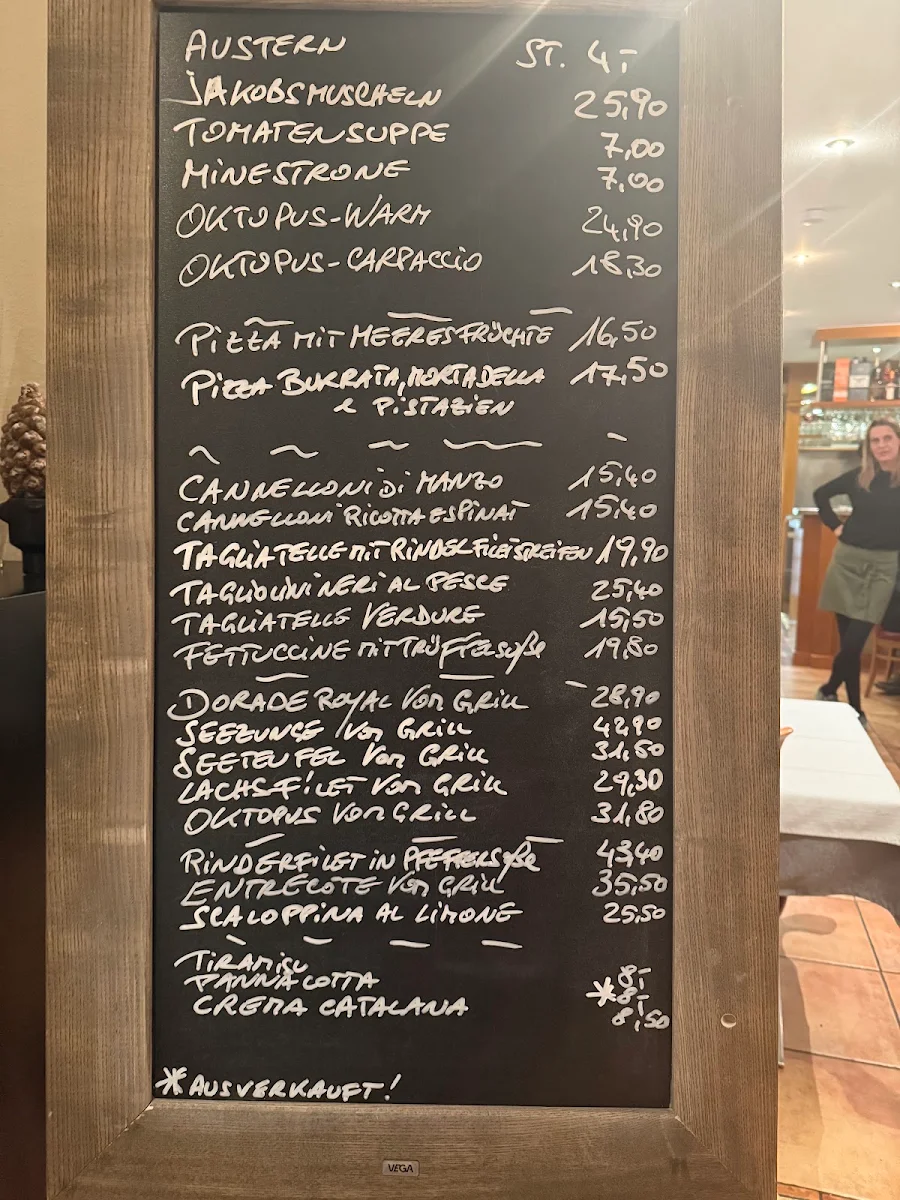 AUSTERN ST. 4,-
JAKOBSMUSCHELN 25,90
TOMATENSUPPE 7,00
MINESTRONE 7,00
OKTOPUS-WARM 24,90
OKTOPUS-CARPACCIO 18,30
PIZZA MIT MEERESFRÜCHTE 16,50
PIZZA BURRATA, MORTADELLA 17,50
e PISTAZIEN
CANNELLONI DI MANZO 15,40
CANNELLONI RICOTTA E SPINAT 15,40
TAGLIATELLE MIT RINDERFILETSTREIFEN 19,90
TAGLIOLINI NERI AL PESCE 25,40
TAGLIATELLE VERDURE 15,50
FETTUCCINE MIT TRÜFFELSOßE 19,80
DORADE ROYAL VOM GRILL 28,90
SEEZUNGE VOM GRILL 42,90
SEETEUFEL VOM GRILL 31,50
LACHSFILET VOM GRILL 29,30
OKTOPUS VOM GRILL 31,80
RINDERFILET IN PFEFFERSOßE 43,40
ENTRECOTE VOM GRILL 35,50
SCALOPPINA AL LIMONE 25,50
TIRAMISU 8,-
PANNA COTTA *8,-
CREMA CATALANA 8,50
*AUSVERKAUFT!
VEGA